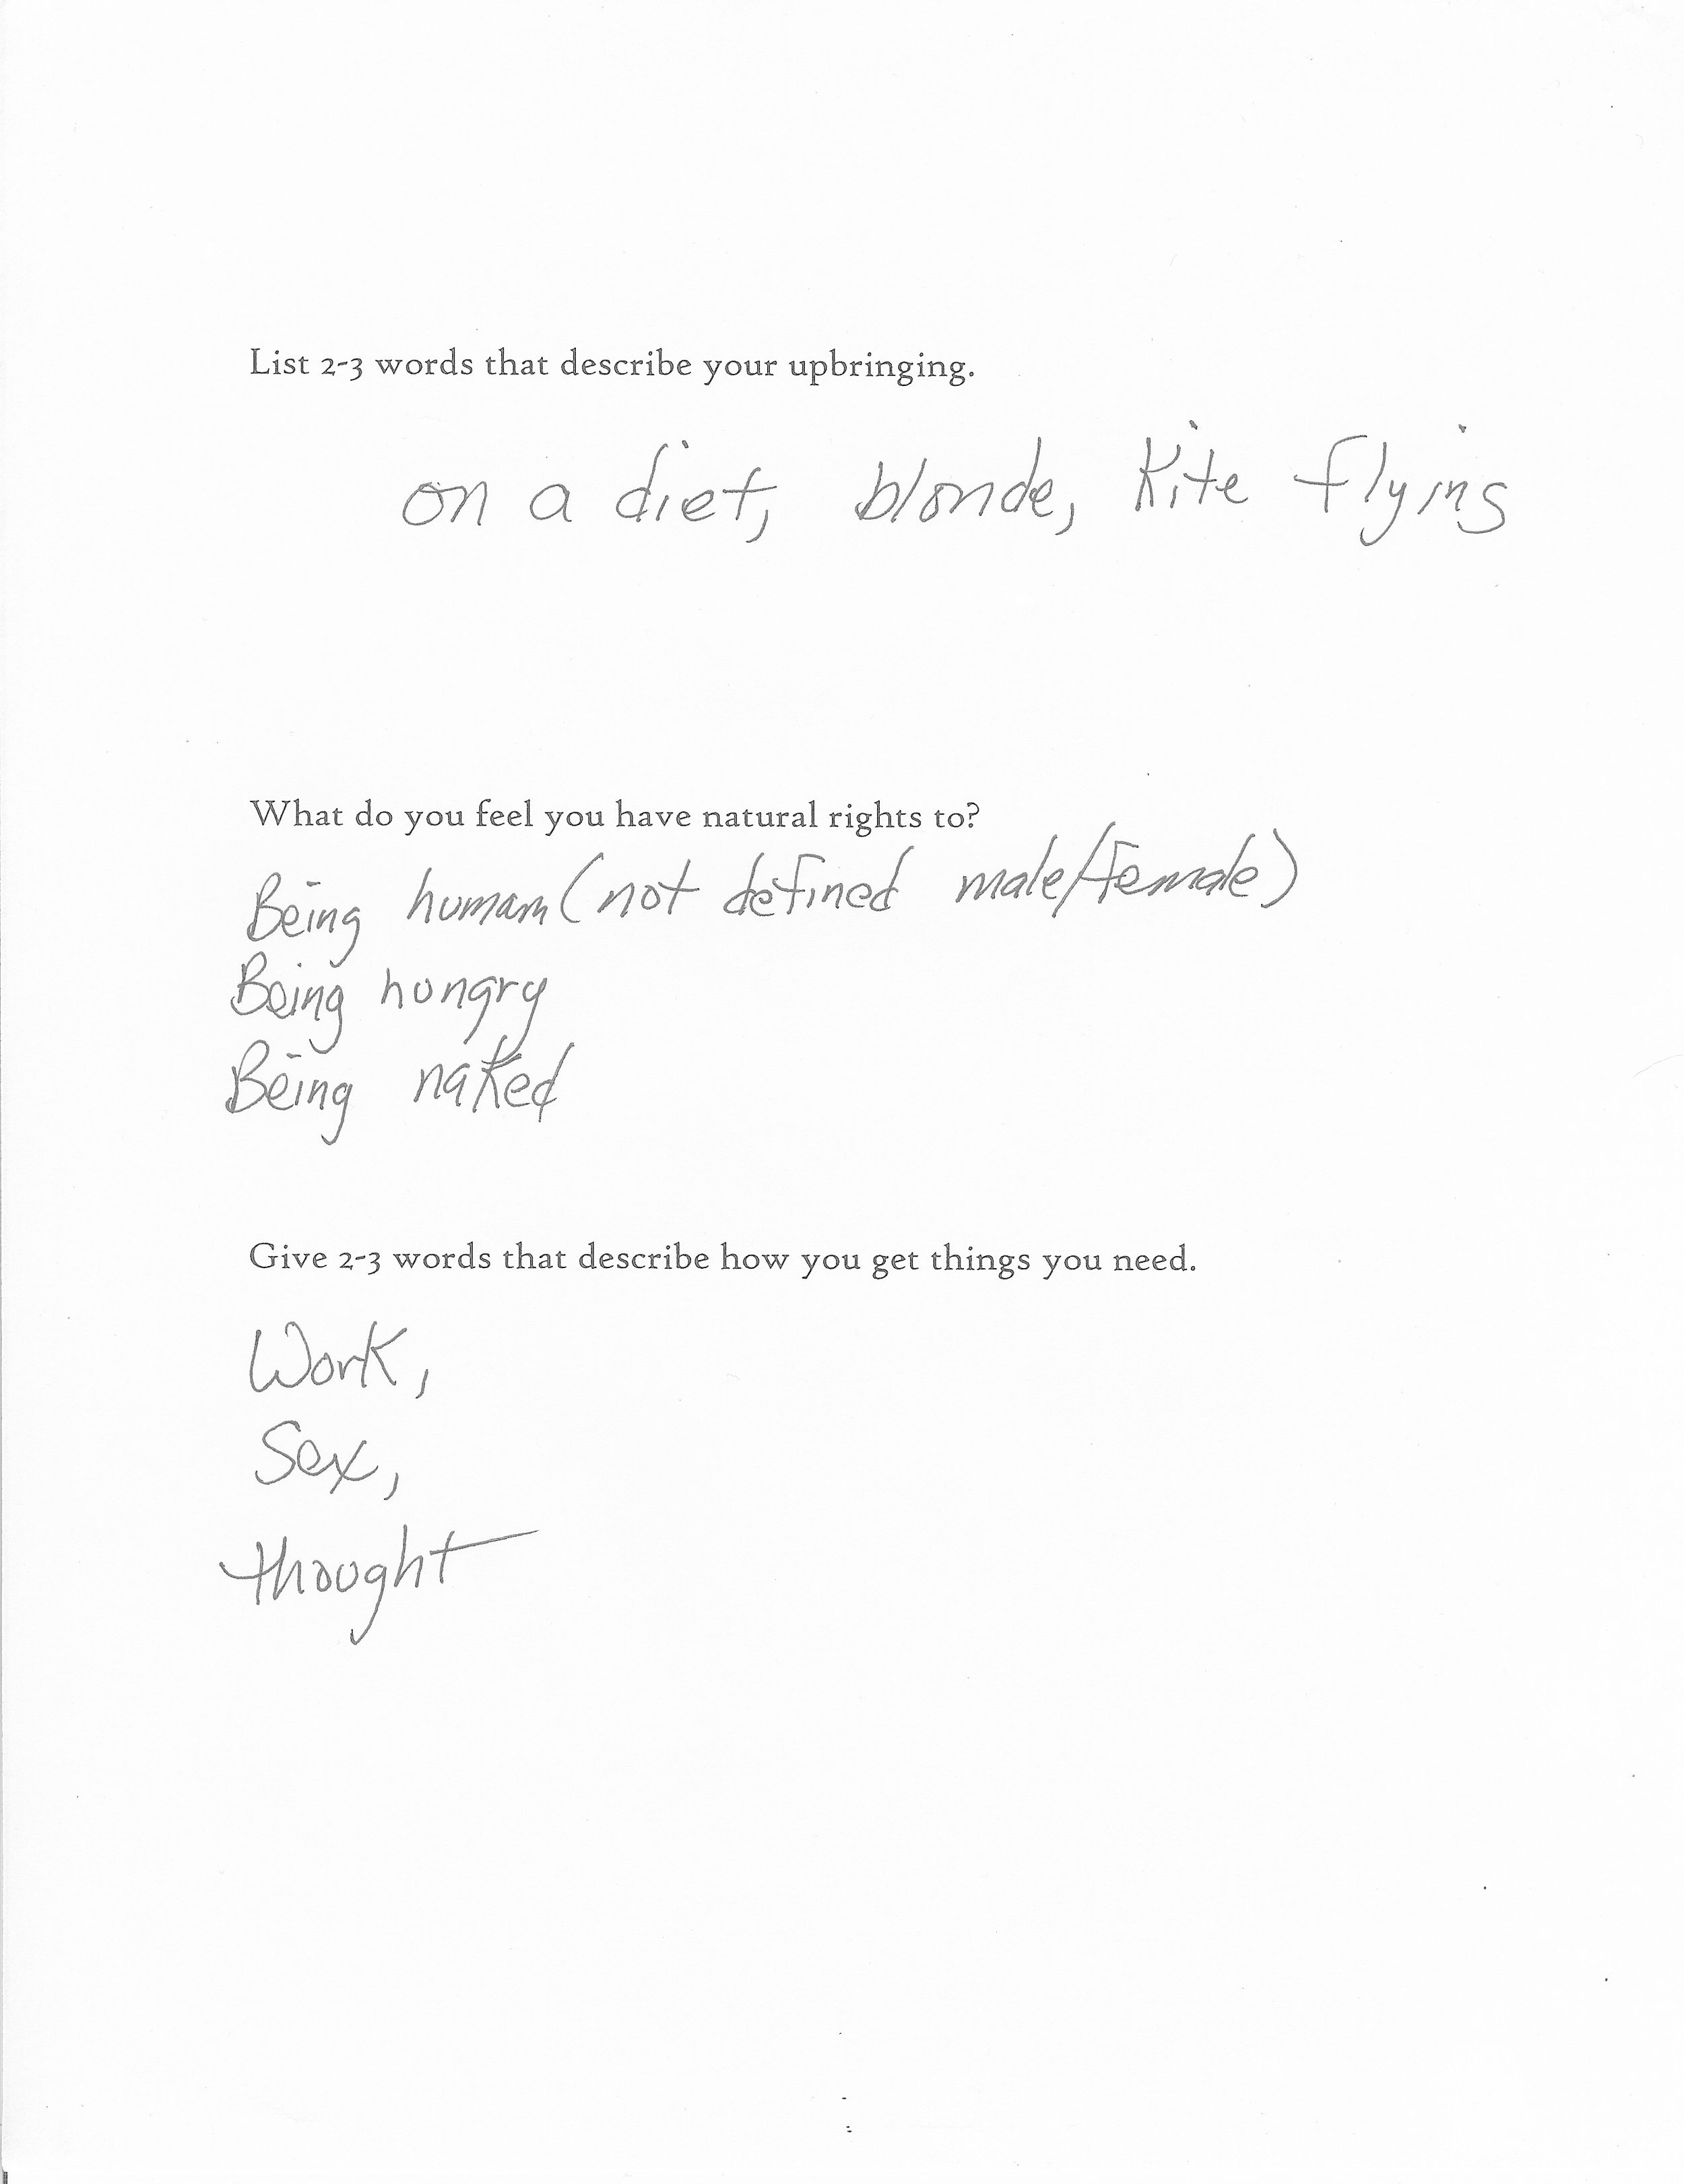 List 2-3 words that describe your upbringing.
on a diet, blonde, Kite flying
What do you feel you have natural rights to?
Being human (not defined male/female)
Being hungry
Being naked
Give 2-3 words that describe how you get things you need.
Work,
Sex,
thought